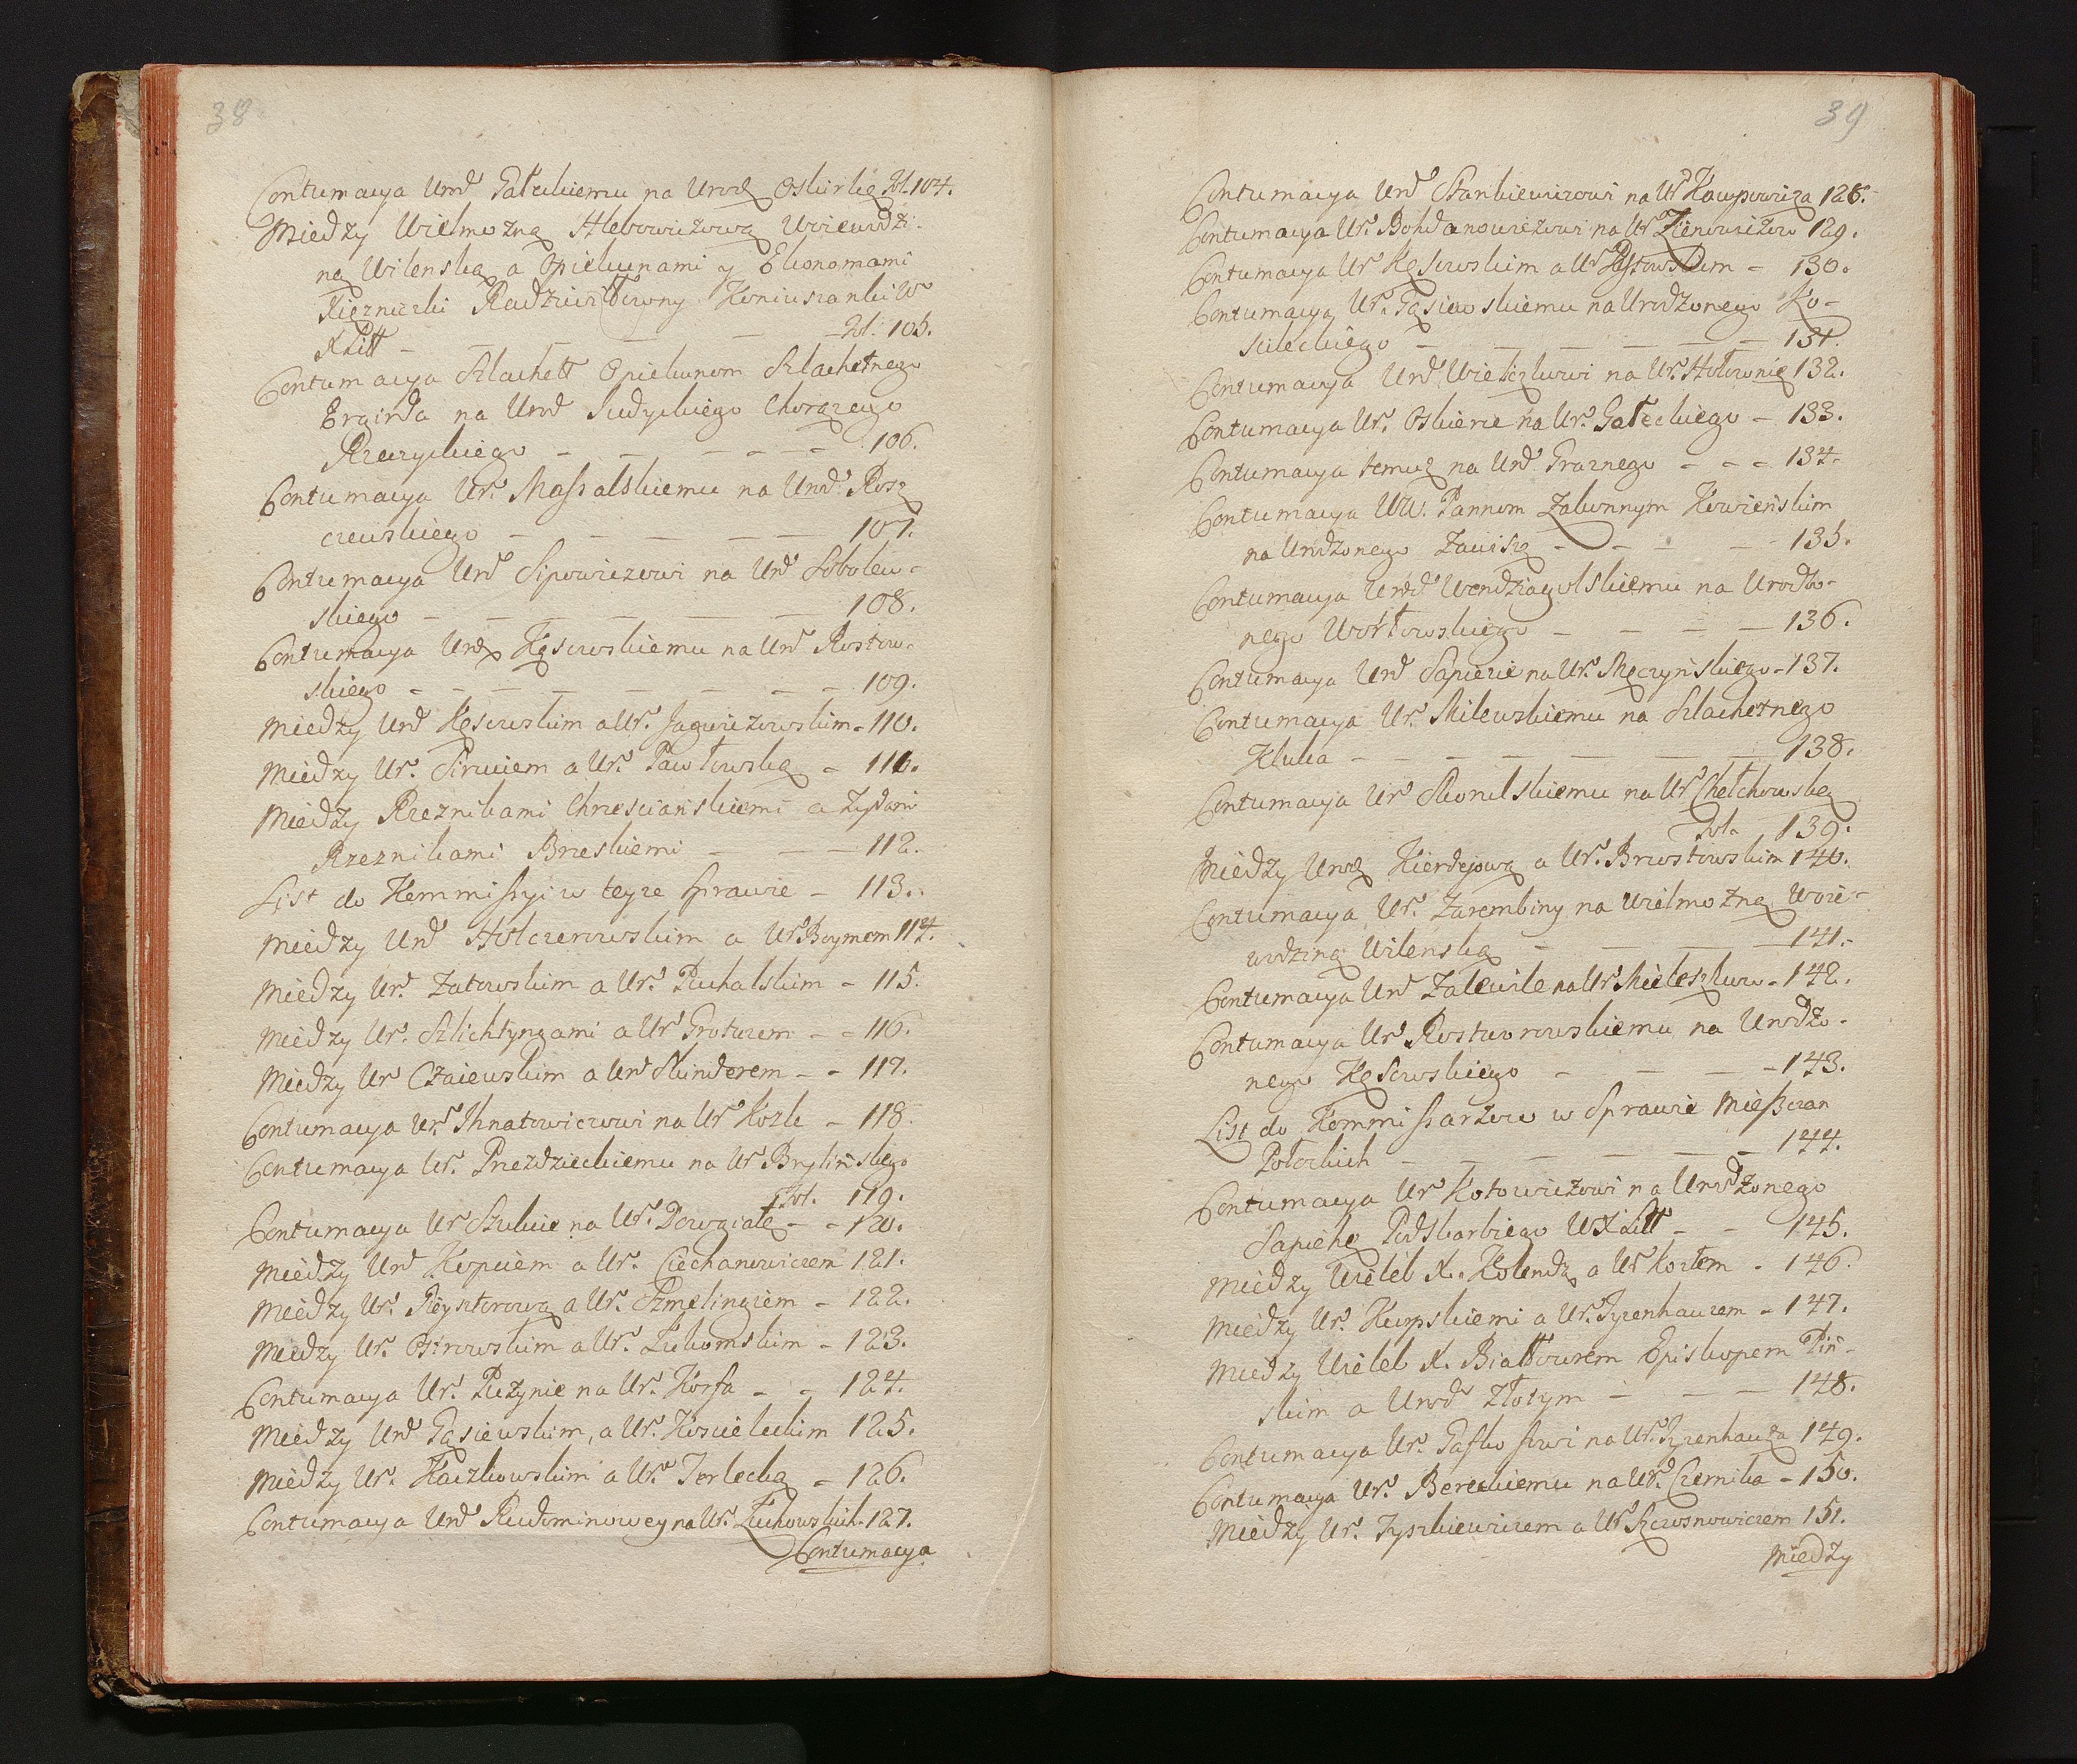 38
Contumacya Urod Gałeckiemu na Urod Oskirkę fol. 104.
Między Wielmożną Hlebowiczową Woiewodzi-
ną Wilenską a Opiekunami y Ekonomami
Xiężniczki Radziwiłłowny Koniuszanki W
X Litt - - - - - fol: 105.
Contumacya Szlachett Opiekunom Szlachetnego
Ergirda na Urod Judyckiego Chorążego
Rzeczyckiego - - - - - 106.
Contumacya Ur. Massalskiemu na Urod. Rosz
czewskiego - - - - - 107.
Contumacya Urd Sipowiczowi na Urd Sobolew-
skiego - - - - - 108.
Contumacya Urod Kęsowskiemu na Urd Rostow-
skiego - - - - - - - 109.
Między Urd Kęsowskim a Ur. Jacewiczowskim - 110.
Między Ur. Piruciem a Ur. Pawłowską - 111.
Między Rzeznikami Chrzescianskiemi a Żydami
Rzeznikami Brzeskiemi - - - 112.
List do Kommissyi w teyze sprawie - 113.
Między Urd Holczerowskim a Ur. Boymem 114.
Między Ur. Zatowskim a Ur. Puchalskim - 115.
Między Ur. Szlichtyngami a Ur Grotuzem - - 116.
Między Ur Czaiewskim a Urd Skinderem - - 117.
Contumacya Ur. Ihnatowiczowi na Ur Kozle - 118.
Contumacya Ur. Przezdzieckiemu na Ur Brylińskiego
fol. 119.
Contumacya Ur Szukcie na Ur. Dowgiałę - - 120.
Między Urd Kopciem a Ur. Ciechanowiczem 121.
Między Ur. Reysztorową a Ur. Szmelingiem - 122.
Między Ur. Ostrowskim a Ur. Łukomskim - 123.
Contumacya Ur. Puzynie na Ur. Korfa - - 124.
Między Urd Gąsiewskim, a Ur. Koscieleckim 125.
Między Ur. Kaczkowskim a Ur. Terlecką - 126.
Contumacya Urd Rudominowey na Ur. Żukowskich. 127.
Contumacya
39
Contumacya Urd Stankiewiczowi na Ur Kacpowicza 128.
Contumacya Ur. Bohdanowiczowi na Ur Zienowiczow 129.
Contumacya Ur Kęsowskim a Ur Rostowskim - 130.
Contumacya Ur. Gąsiewskiemu na Urodzonego Ko-
scieckiego - - - - - - 131.
Contumacya Urd Wielczkowi na Ur. Hołownię 132.
Contumacya Ur. Oskierce na Ur. Gałeckiego - 133.
Contumacya temuz na Urd. Graznego - - - 134.
Contumacya WW. Pannom Zakonnym Kowieńskim
na Urodzonego Zawiszę - - - - 135.
Contumacya Urod Wendziagolskiemu na Urodzo-
nego Worłowskiego - - - - 136.
Contumacya Urd Sapiezie na Ur. Męczyńskiego - 137.
Contumacya Ur. Milewskiemu na Szlachetnego
Kluka - - - - - - - 138.
Contumacya Ur Skorulskiemu na Ur Chełchowską
fol. 139.
Między Urod Kierdejową a Ur. Brzostowskim 140.
Contumacya Ur. Zarembiny na Wielmożną Woie-
wodziną Wilenską - - - - 141.
Contumacya Urd Zalewile na Ur Mieleszkow - 142.
Contumacya Ur Rostworowskiemu na Urodzo-
nego Kęsowskiego - - - - 143.
List do Kommissarzow w Sprawie Mieszczan
Połockich - - - - - - 144.
Contumacya Ur Kotowiczowi na Urodzonego
Sapiehę Podskarbiego W X Litt - - 145.
Między Wieleb X. Kolendą a Ur Korlem - 146.
Między Ur. Kurpskiemi a Ur. Tyzenhauzem - 147.
Między Wieleb X. Białłozurem Episkopem Piń-
skim a Urod Złotym - - - 148.
Contumacya Ur. na Ur. Tyzenhauza 149.
Contumacya Ur. Bereckiemu na Urd. Czernika - 150.
Między Ur. Tyszkiewiczem a Ur Szewsnowiczem 151.
Między